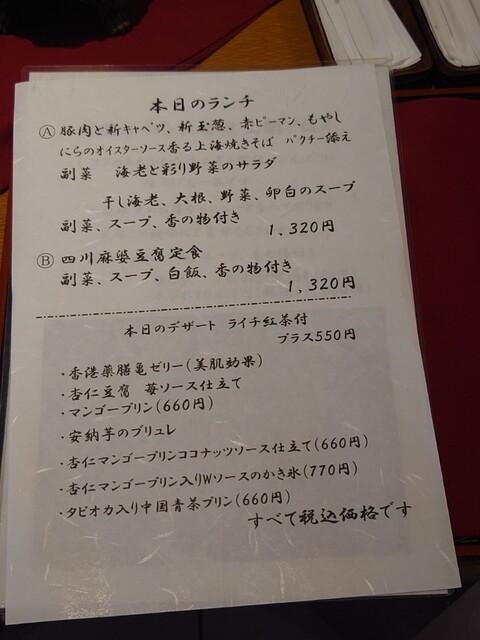 本日のランチ
Ⓐ 豚肉と新キャベツ、新玉葱、赤ピーマン、もやし
にらのオイスターソース香る上海焼きそば パクチー添え
副菜 海老と彩り野菜のサラダ
干し海老、大根、野菜、卵白のスープ
副菜、スープ、香の物付き 1,320円
Ⓑ 四川麻婆豆腐定食
副菜、スープ、白飯、香の物付き
1,320円
本日のデザート ライチ紅茶付
プラス550円
・香港薬膳亀ゼリー(美肌効果)
・杏仁豆腐 苺ソース仕立て
・マンゴープリン(660円)
・安納芋のブリュレ
・杏仁マンゴープリンココナッツソース仕立て(660円)
・杏仁マンゴープリン入りWソースのかき氷(770円)
・タピオカ入り中国青茶プリン(660円)
すべて税込価格です